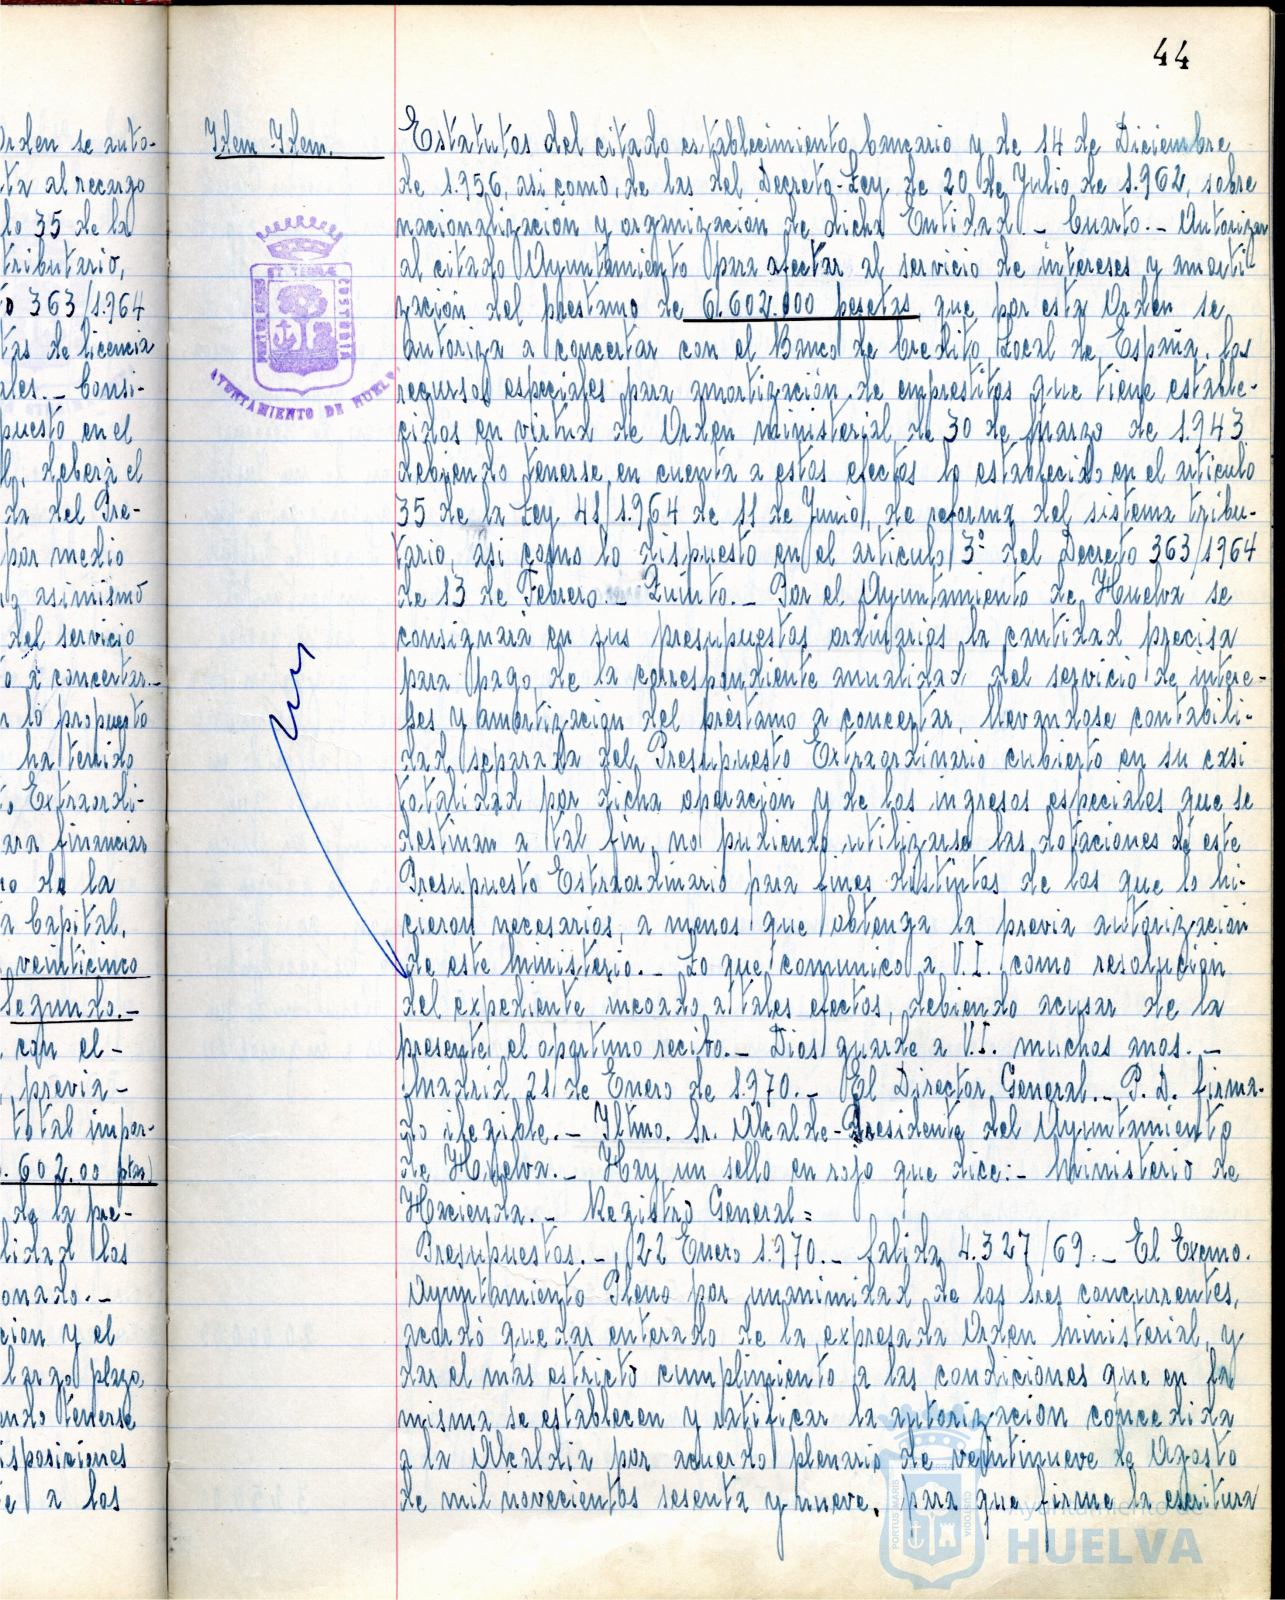 44
rden se auto-
ta al recargo
lo 35 de la
tributario,
to 363/1.964
tas de licencia
ales.- Consi-
puesto en el
deberá el
da del Pre-
por medio
asimismo
del servicio
o a concertar.-
r lo propuesto
ha tenido
Extraordi-
ara financiar
ro de la
a Capital.
veinticinco
Segundo.-
con el-
previa-
total impor-
.602.00 ptas)
de la pre-
lidad los
onado.-
cion y el
largo plazo,
ndo tenerse
isposiciones
e a los
Idem Idem.
PORTUS MARIS ET TERRAE CUSTODIA
AYUNTAMIENTO DE HUELVA
Estatutos del citado establecimiento bancario y de 14 de Diciembre
de 1.956, asi como, de las del Decreto-Ley de 20 de Julio de 1.962, sobre
nacionalización y organización de dicha Entidad.- Cuarto.- Autorizar
al citado Ayuntamiento para afectar al servicio de intereses y amorti-
zación del prestamo de 6.602.000 pesetas que por esta Orden se
autoriza a concertar con el Banco de Credito Local de España, los
recursos especiales para amortización de emprestitos que tiene estable-
cidos en virtud de Orden ministerial de 30 de Marzo de 1.943
debiendo tenerse en cuenta a estos efectos lo establecido en el articulo
35 de la Ley 41/1.964 de 11 de Junio, de reforma del sistema tribu-
tario, asi como lo dispuesto en el articulo 3º del Decreto 363/1964
de 13 de Febrero.- Quinto.- Por el Ayuntamiento de Huelva se
consignará en sus presupuestos ordinarios la cantidad precisa
para pago de la correspondiente anualidad del servicio de intere-
ses y amortización del préstamo a concertar, llevandose contabili-
dad separada del Presupuesto Extraordinario cubierto en su casi
totalidad por dicha operación y de los ingresos especiales que se
destinan a tal fin, no pudiendo utilizarse las dotaciones de este
Presupuesto Extraordinario para fines distintos de los que lo hi-
cieron necesarios, a menos que obtenga la previa autorización
de este Ministerio.- Lo que comunico a V.I. como resolución
del expediente incoado a tales efectos, debiendo acusar de la
presente el oportuno recibo.- Dios guarde a V.I. muchos anos.-
Madrid 21 de Enero de 1.970.- El Director General.- P.D. firma-
do ilegible.- Iltmo. Sr. Alcalde-Presidente del Ayuntamiento
de Huelva.- Hay un sello en rojo que dice:- Ministerio de
Hacienda.- Registro General=
Presupuestos.-, 22 Enero 1.970.- Salida 4.327/69.- El Excmo.
Ayuntamiento Pleno por unanimidad de los Sres concurrentes,
acordó quedar enterado de la expresada Orden Ministerial, y
dar el más estricto cumplimiento a las condiciones que en la
misma se establecen y ratificar la autorización concedida
a la Alcaldia por acuerdo plenario de veintinueve de Agosto
de mil novecientos sesenta y nueve, para que firme la escritura
PORTUS MARIS CUSTODIA
Ayuntamiento de
HUELVA